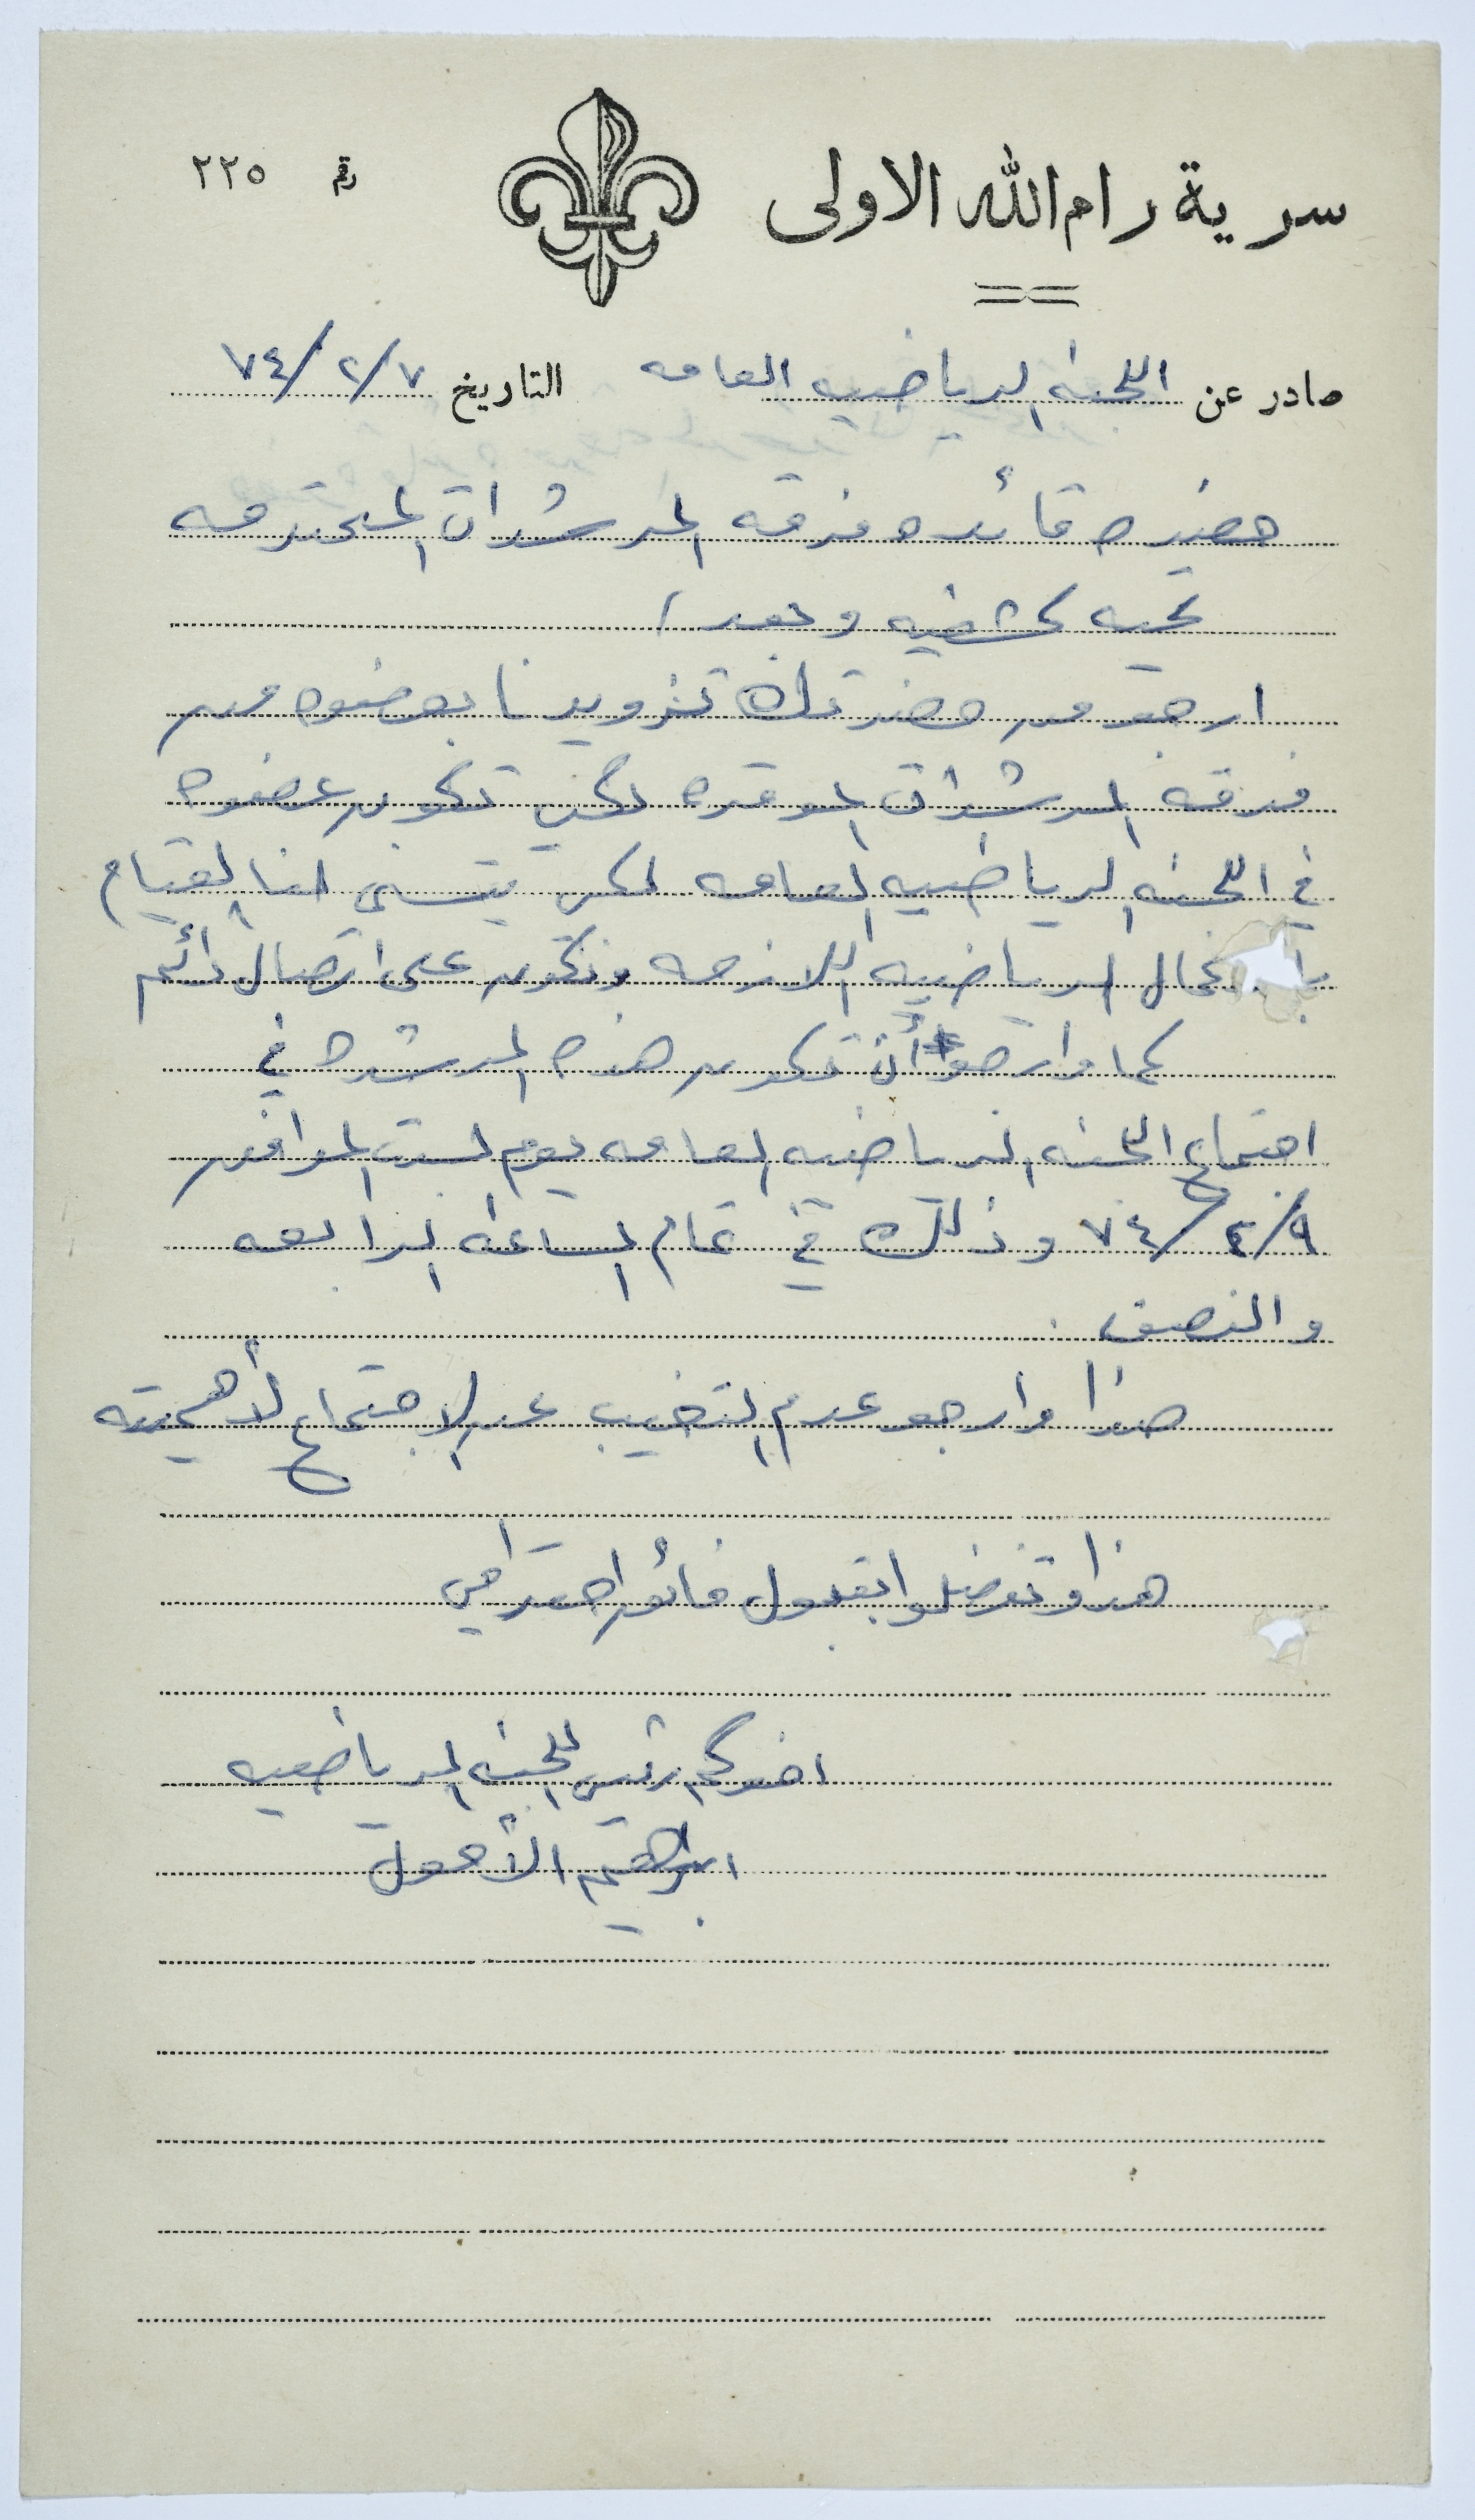 سرية رام الله الاولى
رقم ٢٢٥
صادر عن اللجنه الرياضيه العامه التاريخ ٧٤/٢/٧
حضرة قائده فرقه المرشدات المحترمه
تحيه كشفيه وبعد /
ارجو من حضرتك تزويدنا بعضوه من
فرقه المرشدات الموقره لكي تكون عضوه
في اللجنه الرياضيه العامه لكي يتسنى لنا القيام
الرياضيه اللازمه ونكون على اتصال دائم
كما وارجوا أن تكون هذه المرشده في
اجتماع اللجنه الرياضيه العامه يوم السبت الموافق
٧٤/٢/٩ وذلك في تمام الساعه الرابعه
والنصف .
هذا وارجو عدم التغيب عن الاجتماع لأهميته
هذا وتفضلوا بقبول فائق احترامي
اخوكم رئيس اللجنه الرياضيه
ابراهيم الأحول